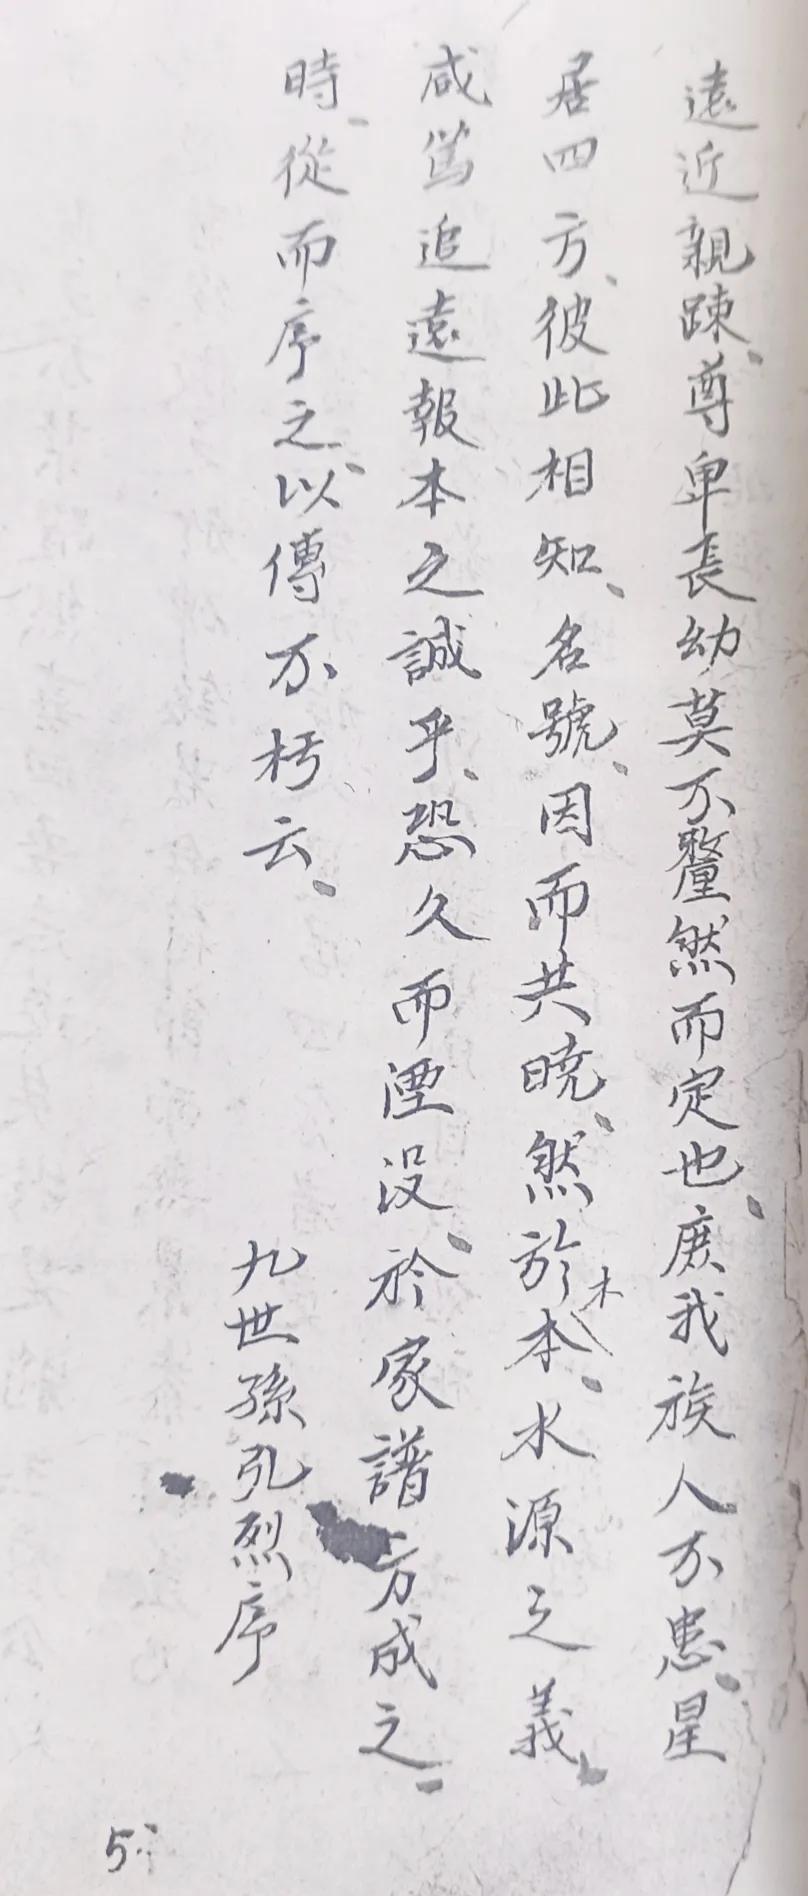 遠近親踈、尊卑長幼莫不釐然而定也、庶我族人不患、星
居四方、彼此相知、名號、因而共曉、然於木本、水源之義、
咸篤追遠報本之誠乎、恐久而湮没、於家譜方成之、
時、從而序之、以傳不朽云、
九世孫弘烈序
5